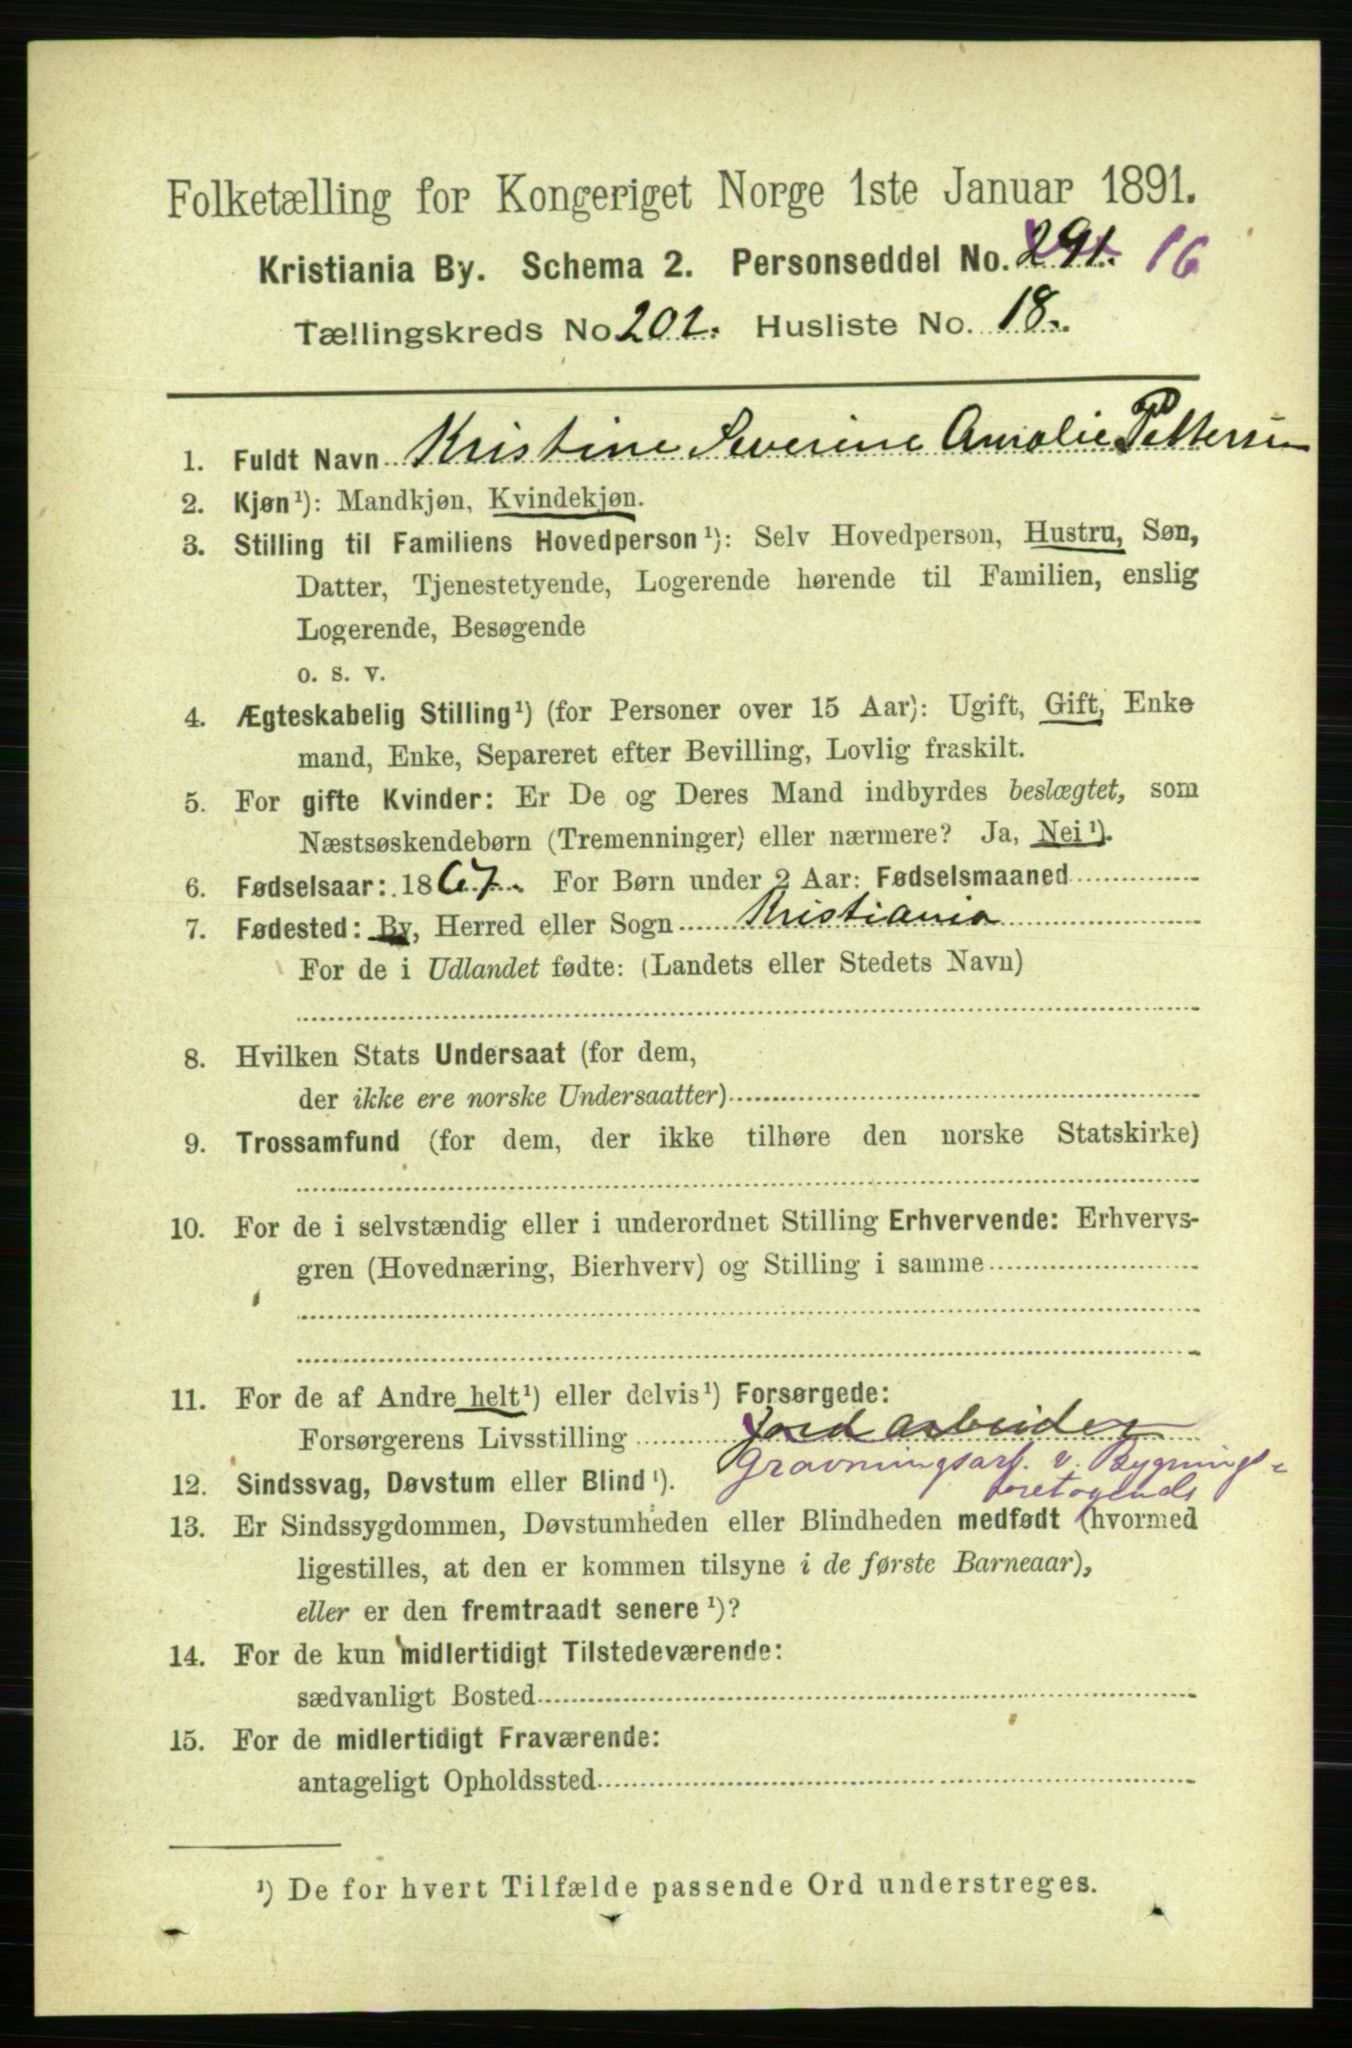 Folketælling for Kongeriget Norge 1ste Januar 1891.
Kristiania By. Schema 2. Personseddel No. 291. 16
Tællingskreds No 202. Husliste No. 18.
1. Fuldt Navn Kristine Severine Amalie Pettersen
2. Kjøn¹): Mandkjøn, Kvindekjøn.
3. Stilling til Familiens Hovedperson¹): Selv Hovedperson, Hustru, Søn,
Datter, Tjenestetyende, Logerende hørende til Familien, enslig
Logerende, Besøgende
o. s. v.
4. Ægteskabelig Stilling¹) (for Personer over 15 Aar): Ugift, Gift, Enke
mand, Enke, Separeret efter Bevilling, Lovlig fraskilt.
5. For gifte Kvinder: Er De og Deres Mand indbyrdes beslægtet, som
Næstsøskendebørn (Tremenninger) eller nærmere? Ja, Nei¹).
6. Fødselsaar: 1867. For Børn under 2 Aar: Fødselsmaaned
7. Fødested: By, Herred eller Sogn Kristiania
For de i Udlandet fødte: (Landets eller Stedets Navn)
8. Hvilken Stats Undersaat (for dem,
der ikke ere norske Undersaatter)
9. Trossamfund (for dem, der ikke tilhøre den norske Statskirke)
10. For de i selvstændig eller i underordnet Stilling Erhvervende: Erhvervs-
gren (Hovednæring, Bierhverv) og Stilling i samme
11. For de af Andre helt¹) eller delvis¹) Forsørgede:
Forsørgerens Livsstilling Jord arbeider
Gravningsarb. v. Bygnings-
12. Sindssvag, Døvstum eller Blind¹). foretagende
13. Er Sindssygdommen, Døvstumheden eller Blindheden medfødt (hvormed
ligestilles, at den er kommen tilsyne i de første Barneaar),
eller er den fremtraadt senere¹)?
14. For de kun midlertidigt Tilstedeværende:
sædvanligt Bosted
15. For de midlertidigt Fraværende:
antageligt Opholdssted
¹) De for hvert Tilfælde passende Ord understreges.